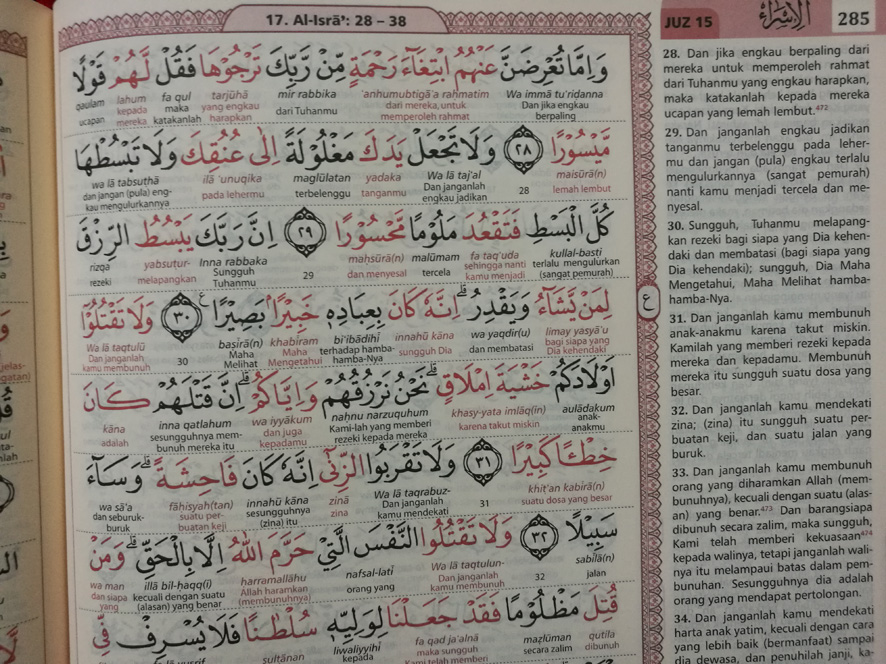 17. Al-Isrā': 28 – 38
JUZ 15
الإسراء
285
وَاِمَّا تُعْرِضَنَّ عَنْهُمُ ابْتِغَاۤءَ رَحْمَةٍ مِّنْ رَّبِّكَ تَرْجُوْهَا فَقُلْ لَّهُمْ قَوْلًا
Wa immā tu'riḍanna 'anhumubtigā'a raḥmatim mir rabbika tarjūhā fa qul lahum qaulam
Dan jika engkau berpaling dari mereka, untuk memperoleh rahmat dari Tuhanmu yang engkau harapkan maka katakanlah kepada mereka ucapan
مَّيْسُوْرًا ۝٢٨ وَلَا تَجْعَلْ يَدَكَ مَغْلُوْلَةً اِلٰى عُنُقِكَ وَلَا تَبْسُطْهَا
maisūrā(n) 28 Wa lā taj'al yadaka maglūlatan ilā 'unuqika wa lā tabsuṭhā
lemah lembut Dan janganlah engkau jadikan tanganmu terbelenggu pada lehermu dan jangan (pula) engkau mengulurkannya
كُلَّ الْبَسْطِ فَتَقْعُدَ مَلُوْمًا مَّحْسُوْرًا ۝٢٩ اِنَّ رَبَّكَ يَبْسُطُ الرِّزْقَ
kullal-basṭi fa taq'uda malūmam maḥsūrā(n) 29 Inna rabbaka yabsuṭur- rizqa
terlalu mengulurkan (sangat pemurah) sehingga nanti kamu menjadi tercela dan menyesal Sungguh Tuhanmu melapangkan rezeki
لِمَنْ يَّشَاۤءُ وَيَقْدِرُۗ اِنَّهٗ كَانَ بِعِبَادِهٖ خَبِيْرًاۢ بَصِيْرًا ۝٣٠ وَلَا تَقْتُلُوْٓا
limay yasyā'u wa yaqdir(u) innahū kāna bi'ibādihī khabīram baṣīrā(n) 30 Wa lā taqtulū
bagi siapa yang Dia kehendaki dan membatasi sungguh Dia terhadap hamba-hamba-Nya Maha Mengetahui Maha Melihat Dan janganlah kamu membunuh
اَوْلَادَكُمْ خَشْيَةَ اِمْلَاقٍۗ نَحْنُ نَرْزُقُهُمْ وَاِيَّاكُمْۗ اِنَّ قَتْلَهُمْ كَانَ
aulādakum khasy-yata imlāq(in) naḥnu narzuquhum wa iyyākum inna qatlahum kāna
anak-anakmu karena takut miskin Kami-lah yang memberi rezeki kepada mereka dan juga kepadamu sesungguhnya membunuh mereka itu adalah
خِطْـًٔا كَبِيْرًا ۝٣١ وَلَا تَقْرَبُوا الزِّنٰىٓ اِنَّهٗ كَانَ فَاحِشَةًۗ وَسَاۤءَ
khiṭ'an kabīrā(n) 31 Wa lā taqrabuz- zinā innahū kāna fāḥisyah(tan) wa sā'a
suatu dosa yang besar Dan janganlah kamu mendekati zina sesungguhnya (zina) itu suatu perbuatan keji dan seburuk-buruk
سَبِيْلًا ۝٣٢ وَلَا تَقْتُلُوا النَّفْسَ الَّتِيْ حَرَّمَ اللّٰهُ اِلَّا بِالْحَقِّۗ وَمَنْ
sabīlā(n) 32 Wa lā taqtulun- nafsal-latī ḥarramallāhu illā bil-ḥaqq(i) wa man
jalan Dan janganlah kamu membunuh orang yang Allah haramkan (membunuhnya) kecuali dengan suatu (alasan) yang benar dan siapa yang
قُتِلَ مَظْلُوْمًا فَقَدْ جَعَلْنَا لِوَلِيِّهٖ سُلْطٰنًا فَلَا يُسْرِفْ فِّى
qutila maẓlūman fa qad ja'alnā liwaliyyihī sulṭānan
dibunuh secara zalim maka sungguh Kami telah memberi kepada
ع
28. Dan jika engkau berpaling dari
mereka untuk memperoleh rahmat
dari Tuhanmu yang engkau harapkan,
maka katakanlah kepada mereka
ucapan yang lemah lembut.472
29. Dan janganlah engkau jadikan
tanganmu terbelenggu pada leher-
mu dan jangan (pula) engkau terlalu
mengulurkannya (sangat pemurah)
nanti kamu menjadi tercela dan me-
nyesal.
30. Sungguh, Tuhanmu melapang-
kan rezeki bagi siapa yang Dia kehen-
daki dan membatasi (bagi siapa yang
Dia kehendaki); sungguh, Dia Maha
Mengetahui, Maha Melihat hamba-
hamba-Nya.
31. Dan janganlah kamu membunuh
anak-anakmu karena takut miskin.
Kamilah yang memberi rezeki kepada
mereka dan kepadamu. Membunuh
mereka itu sungguh suatu dosa yang
besar.
32. Dan janganlah kamu mendekati
zina; (zina) itu sungguh suatu per-
buatan keji, dan suatu jalan yang
buruk.
33. Dan janganlah kamu membunuh
orang yang diharamkan Allah (mem-
bunuhnya), kecuali dengan suatu (alas-
an) yang benar.473 Dan barangsiapa
dibunuh secara zalim, maka sungguh,
Kami telah memberi kekuasaan474
kepada walinya, tetapi janganlah wali-
nya itu melampaui batas dalam pem-
bunuhan. Sesungguhnya dia adalah
orang yang mendapat pertolongan.
34. Dan janganlah kamu mendekati
harta anak yatim, kecuali dengan cara
yang lebih baik (bermanfaat) sampai
dia dewasa, dan penuhilah janji, ka-